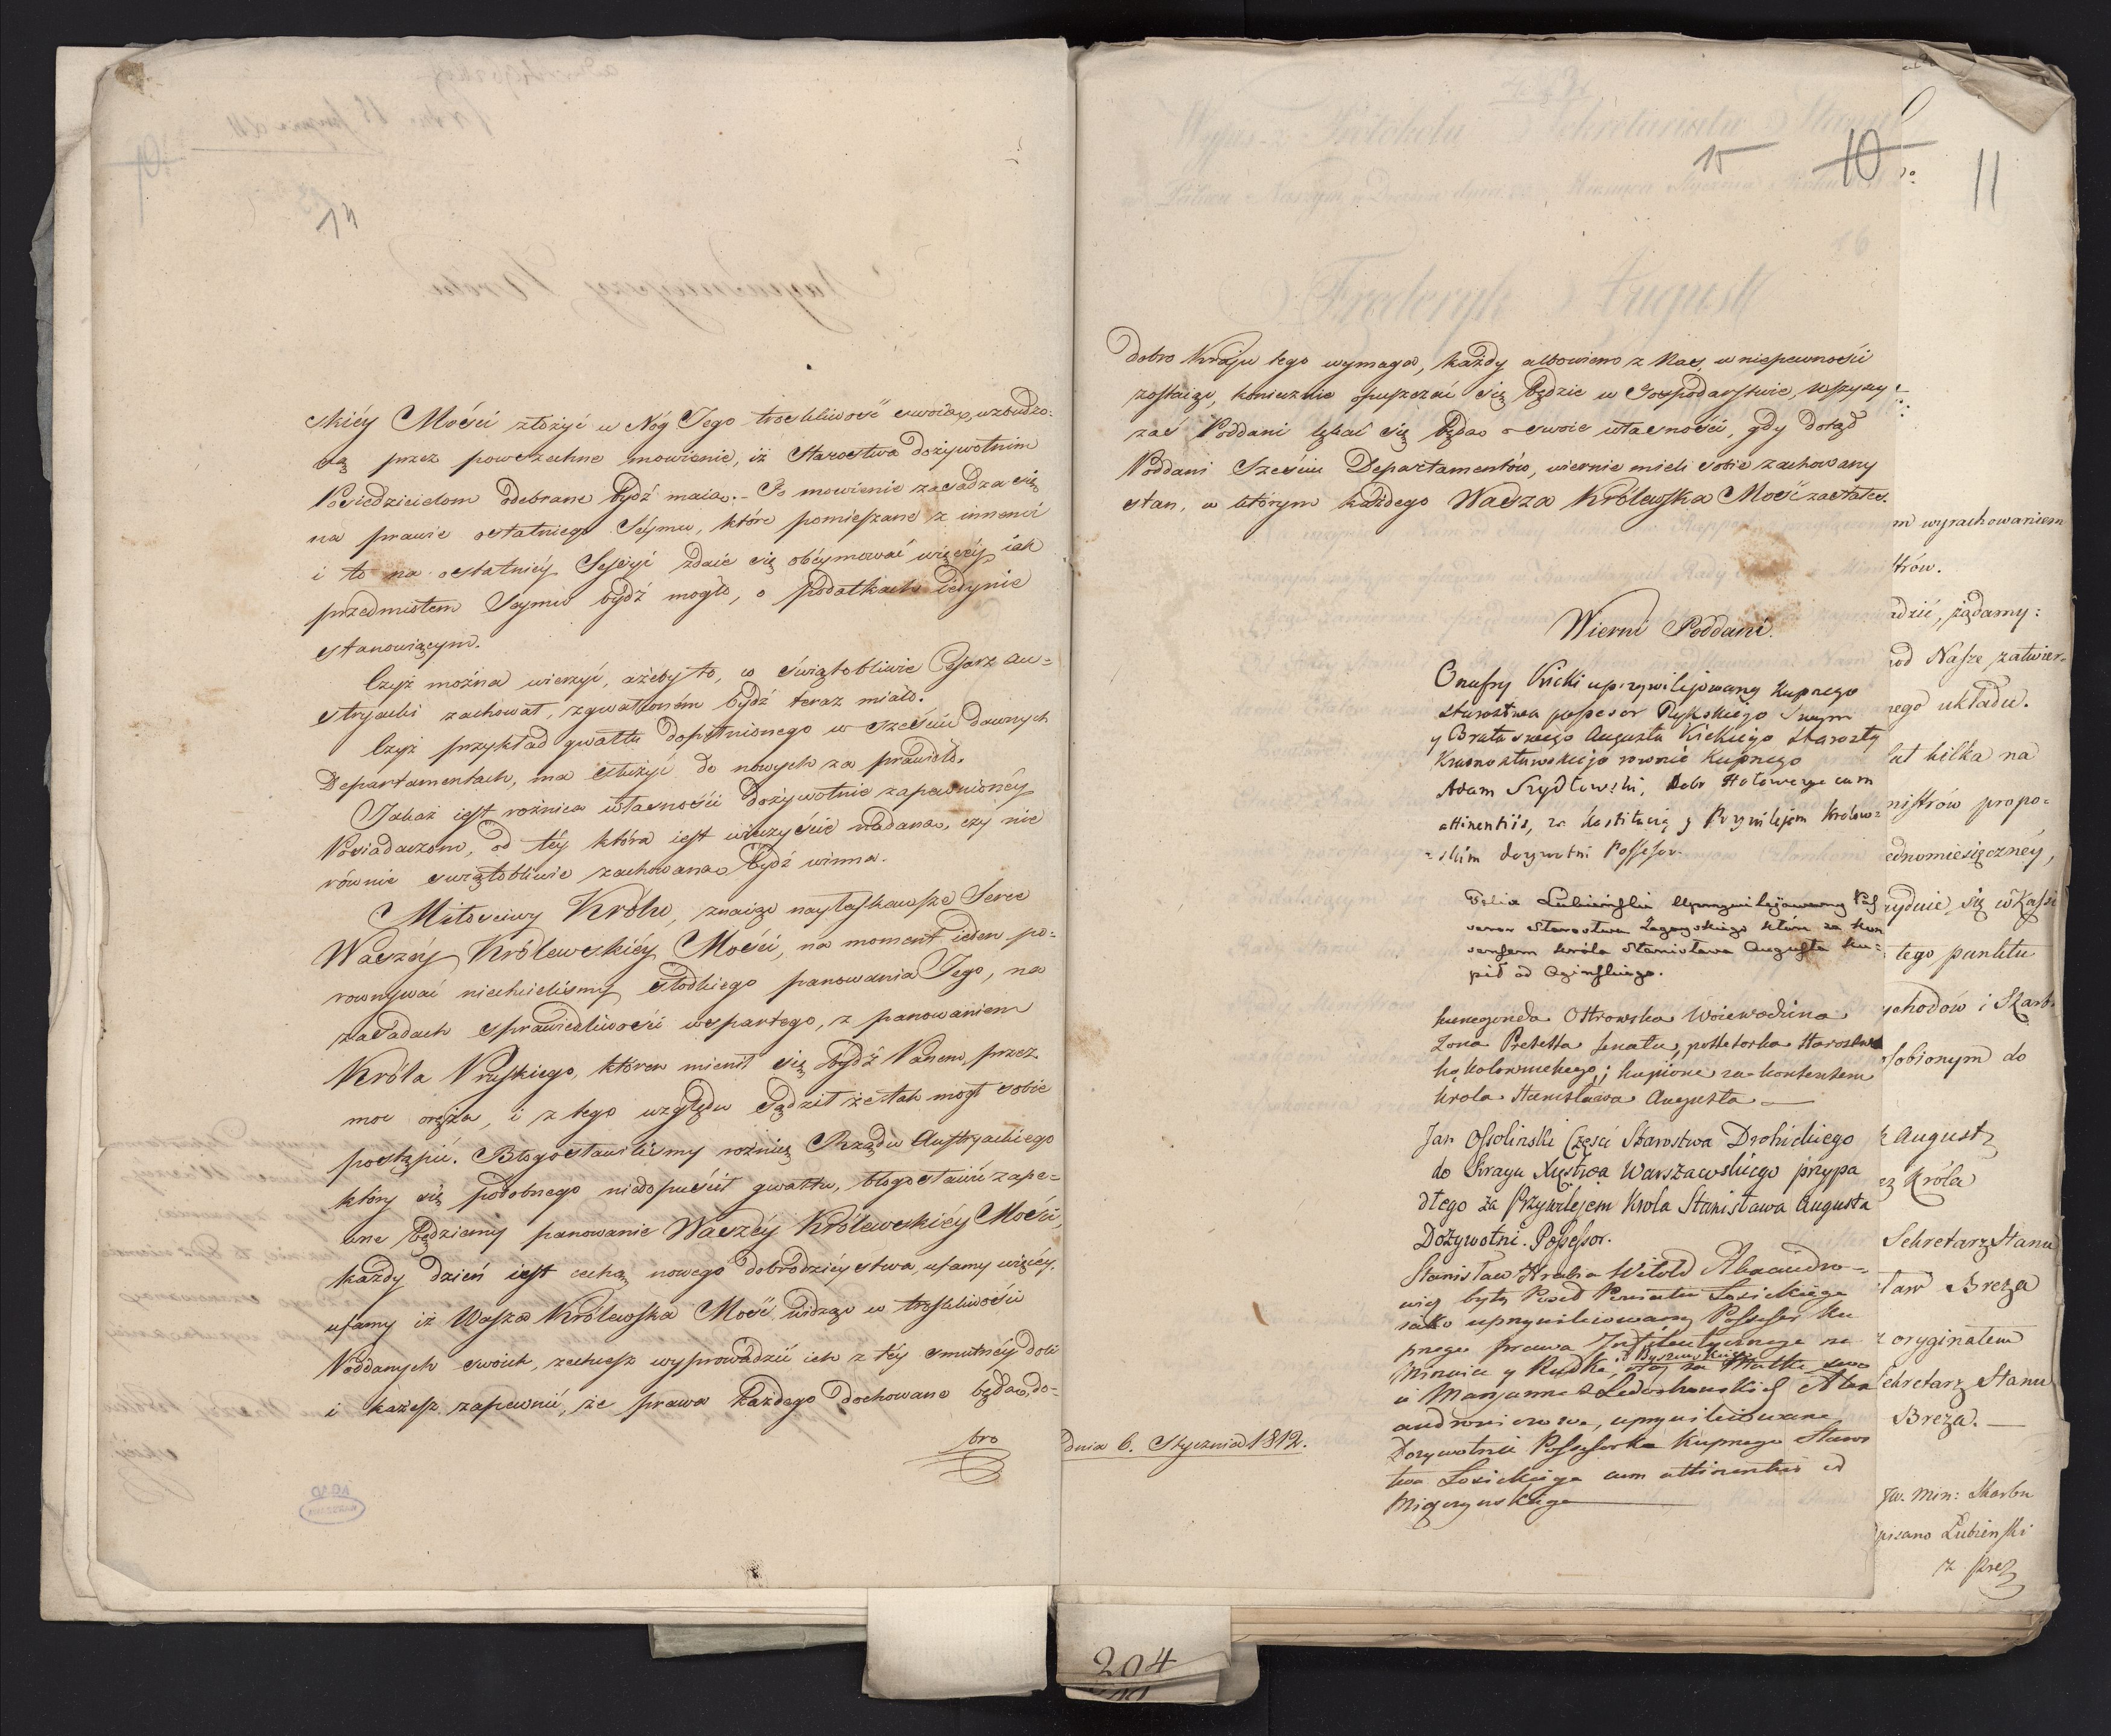 14
skiéy Mości złożyć u Nóg Jego troskliwość swoią, wzbudzo-
ną przez powszechne mowienie, iż Starostwa dożywotnim
Posiedzicielom odebrane bydź maią. - To mowienie zasadza się
na prawie ostatniego Seymu, które pomieszane z innemi
i to na ostatniéy Sessyi zdaie się obéymować więcéy iak
przedmiotem Seymu bydź mogło, o podatkach iedynie
stanowiącym.
Czyż można wierzyć, ażeby to, co świątobliwie Cesarz Au=
stryacki zachował, zgwałconém bydź teraz miało.
Czyż przykład gwałtu dopełnionego w sześciu dawnych
Departamentach, ma służyć do nowych za prawidło.
Jakaż iest rożnica własności dożywotnie zapewnionéy
Posiadaczom, od téy która iest wieczyście nadana, czy nie
równie świątobliwie zachowana bydź winna.
Miłościwy Królu, znaiąc nayłaskawsze Serce
Waszéy Królewskiéy Mości, na moment ieden po-
rownywać niechcieliśmy słodkiego panowania Jego, na
zasadach sprawiedliwości wspartego, z panowaniem
Króla Pruskiego, któren mienił się bydź Panem, przez
moc oręża, i z tego względu sądził że tak mogł sobie
postąpić. Błogosławiliśmy rożnicę Rządu Austryackiego
który się podobnego niedopuścił gwałtu, błogosławić zape=
wne będziemy panowanie Waszéy Królewskiéy Mości,
każdy dzień iest cechą nowego dobrodzieystwa, ufamy więcéy.
ufamy iż Wasza Królewska Mość widząc w troskliwości
Poddanych swoich, zechcesz wyprowadzić ich z téy smutnéy doli
i każesz zapewnić, że prawa każdego dochowane będą, do-
bro
15
10
11
dobro Kraju tego wymaga, każdy albowiem z Nas, w niepewności
zostaiąc, koniecznie opuszczać się będzie w Gospodarstwie, wszyscy
zaś Poddani lękać się będą o swoie własności, gdy dotąd
Poddani Sześciu Departamentów, wiernie mieli sobie zachowany
stan, w którym każdego Wasza Królewska Mość zastałeś.
Wierni Poddani.
Onufry Kicki uprzywilejowany Kupnego
Starostwa possesor Ryskiego Swym
y Brata swego Augusta Kickiego Starosty
Krasnostawskiego rownie Kupnego
Adam Szydłowski, Dobr Hołowczyc cum
attinentiis, za Konstitucią y Przywilejem Królew=
=skim dożywotni Possesor.
Felix Lubieński Uprzywilejowany Pos
sessor Starostwa Zagoyskiego które za kon
sensem króla Stanisława Augusta ku=
pił od Oginskiego.
Kunegonda Ostrowska Woiewodzina
żona Prezesa Senatu, possesorka Starostwa
kąkolewnickiego; kupione za konsensem
króla Stanisława Augusta
Jan Ossolinski Częsci Starostwa Drohickiego
do Kraju Xięstwa Warszawskiego przypa
dłego za Przywilejem Krola Stanisława Augusta
Dożywotni Possessor.
Stanisław Hrabia Witold Alexandro=
wicz były Poseł Powiatu Łosickiego
iako uprzywileiowany Possesor ku
pnego prawa na
y Rudkę, oraz za Matkę swo
ią Maryannę z Ledochowskich Alex
androwiczowa, uprzywileiowana
Dożywotnia Possessorka kupnego Staros
twa Łosickiego cum attinentiis
dnia 6. Stycznia 1812.
m wyrachowaniem
trów.
adzić, żądamy:
od Nasze zatwier-
nego układu.
lat kilka na
nistrów propo=
ednomiesięcznéy,
się w Kassi
tego punktu
ychodów i Skarb
osobionym do
k August
ez Króla
Sekretarz Stanu
ław Breza
z oryginałem
Sekretarz Stanu
Breza.
Min: Skarbu
pisano Łubienski
204